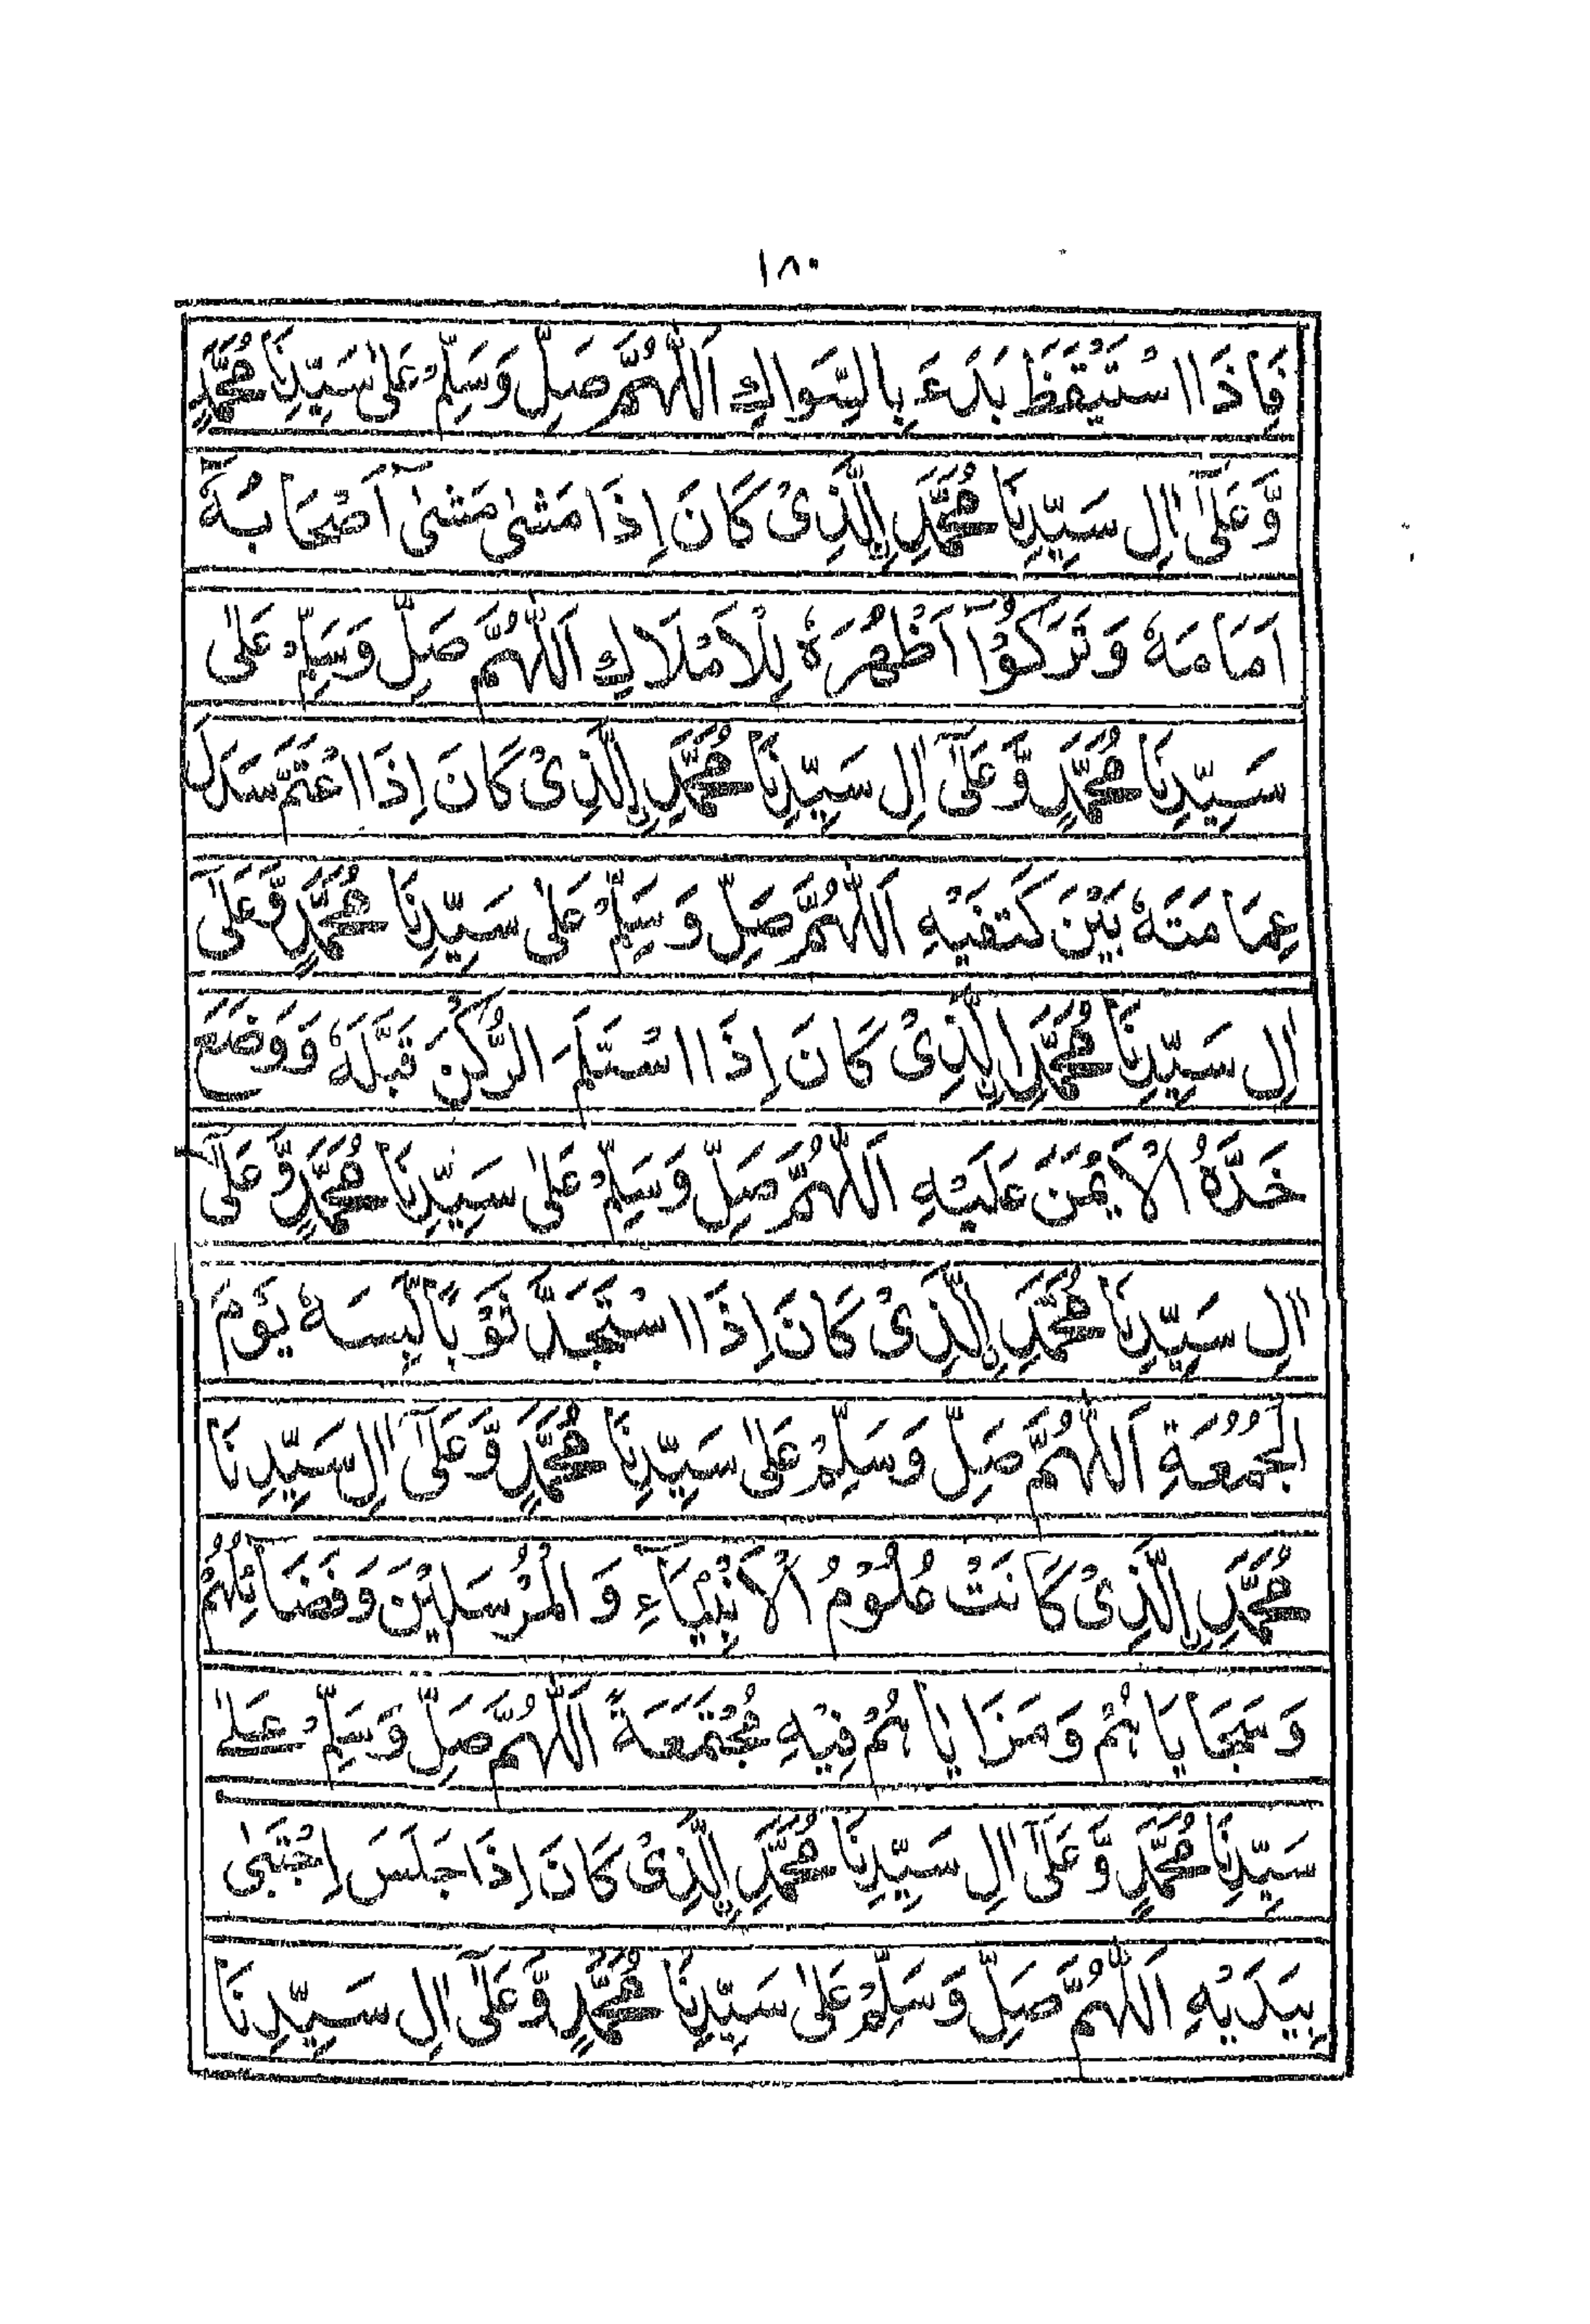 ١٨٠
فَاِذَا اسْتَيْقَظَ بَدَءَ بِالسِّوَاكِ اَللّٰهُمَّ صَلِّ وَسَلِّمْ عَلٰى سَيِّدِنَا مُحَمَّدٍ
وَّعَلٰٓى اٰلِ سَيِّدِنَا مُحَمَّدِ اِلَّذِىْ كَانَ اِذَا مَشٰى مَشٰىٓ اَصْحَابُهٗٓ
اَمَامَهٗ وَتَرَكُوْٓا اَظْهُرَهٗ لِلْاَمْلَاكِ اَللّٰهُمَّ صَلِّ وَسَلِّمْ عَلٰى
سَيِّدِنَا مُحَمَّدٍ وَّعَلٰٓى اٰلِ سَيِّدِنَا مُحَمَّدِ اِلَّذِىْ كَانَ اِذَا اعْتَمَّ سَدَلَ
عِمَامَتَهٗ بَيْنَ كَتِفَيْهِ اَللّٰهُمَّ صَلِّ وَسَلِّمْ عَلٰى سَيِّدِنَا مُحَمَّدٍ وَّعَلٰٓى
اٰلِ سَيِّدِنَا مُحَمَّدِ اِلَّذِىْ كَانَ اِذَا اسْتَلَمَ الرُّكْنَ قَبَّلَهٗ وَوَضَعَ
خَدَّهُ الْاَيْمَنَ عَلَيْهِ اَللّٰهُمَّ صَلِّ وَسَلِّمْ عَلٰى سَيِّدِنَا مُحَمَّدٍ وَّعَلٰٓى
اٰلِ سَيِّدِنَا مُحَمَّدِ اِلَّذِىْ كَانَ اِذَا اسْتَجَدَّ ثَوْبًا لَّبِسَهٗ يَوْمَ
الْجُمُعَةِ اَللّٰهُمَّ صَلِّ وَسَلِّمْ عَلٰى سَيِّدِنَا مُحَمَّدٍ وَّعَلٰٓى اٰلِ سَيِّدِنَا
مُحَمَّدِ اِلَّذِىْ كَانَتْ عُلُوْمُ الْاَنْبِيَآءِ وَالْمُرْسَلِيْنَ وَفَضَائِلُهُمْ
وَسَجَايَاهُمْ وَمَزَايَاهُمْ فِيْهِ مُجْتَمَعَةً اَللّٰهُمَّ صَلِّ وَسَلِّمْ عَلٰى
سَيِّدِنَا مُحَمَّدٍ وَّعَلٰٓى اٰلِ سَيِّدِنَا مُحَمَّدِ اِلَّذِىْ كَانَ اِذَا جَلَسَ اِحْتَبٰى
بِيَدَيْهِ اَللّٰهُمَّ صَلِّ وَسَلِّمْ عَلٰى سَيِّدِنَا مُحَمَّدٍ وَّعَلٰٓى اٰلِ سَيِّدِنَا